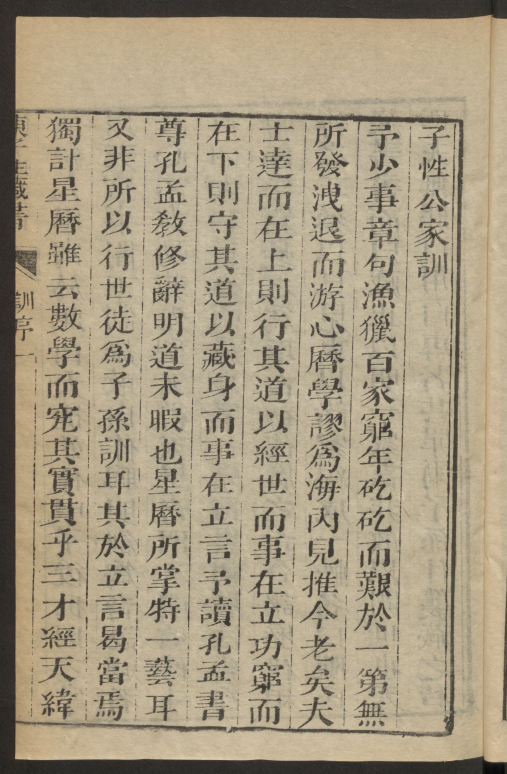 子性公家訓
予少事章句漁獵百家窮年矻矻而艱於一第無
所發洩退而游心曆學謬爲海內見推今老矣夫
士達而在上則行其道以經世而事在立功窮而
在下則守其道以藏身而事在立言予讀孔孟書
尊孔孟教修辭明道未暇也星曆所掌特一藝耳
又非所以行世徒爲子孫訓耳其於立言曷當焉
獨計星曆雖云數學而究其實貫乎三才經天緯
訓序 一